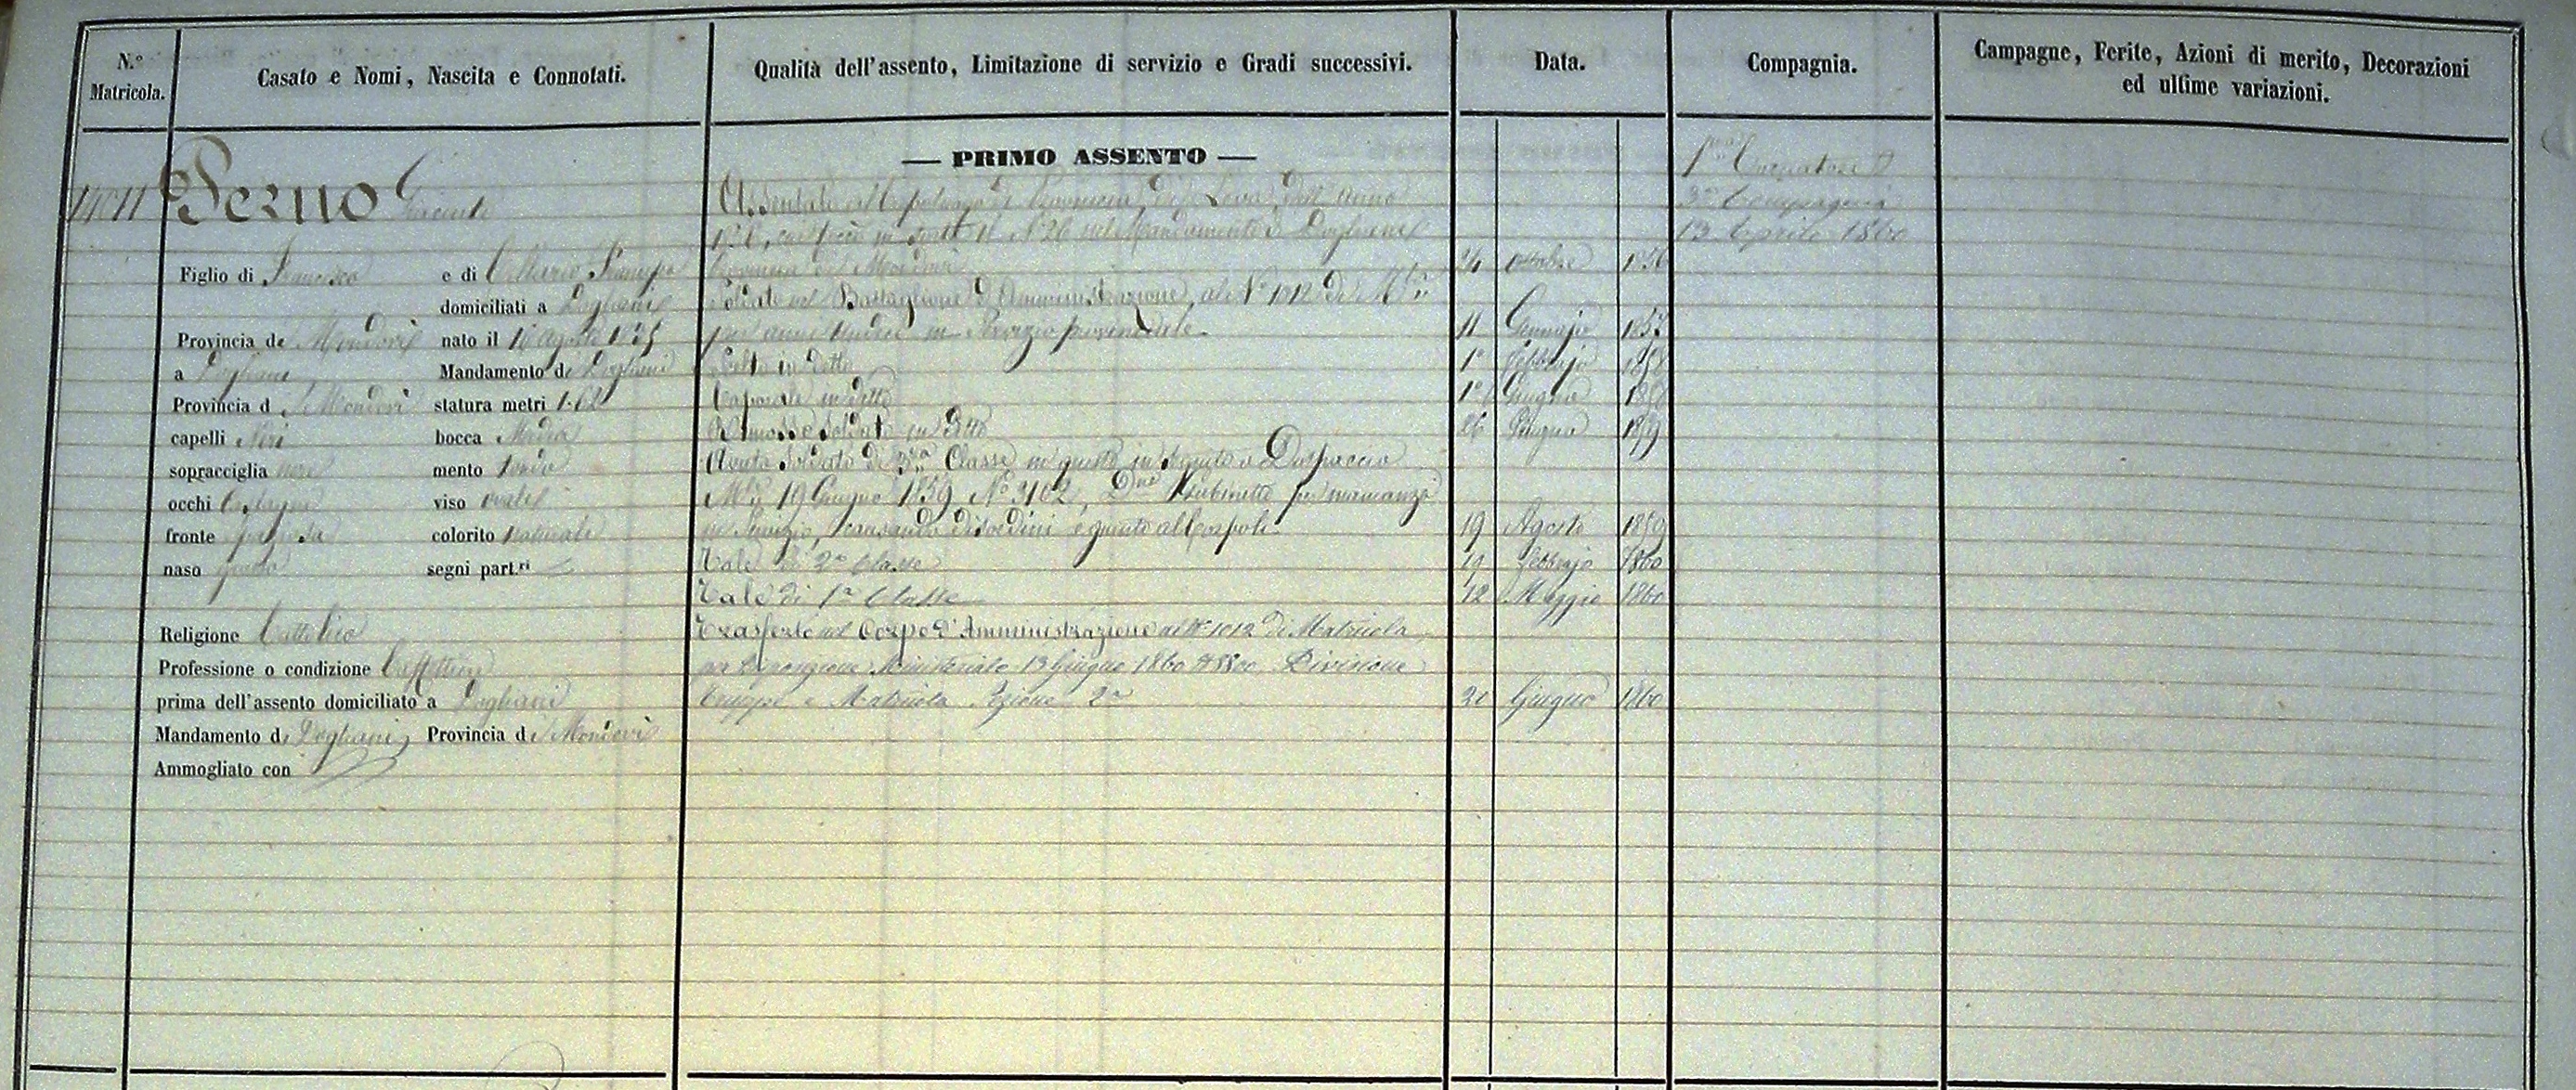 N.° Matricola.
Casato e Nomi, Nascita e Connotati.
Qualità dell'assento, Limitazione di servizio e Gradi successivi.
Data.
Compagnia.
Campagne, Ferite, Azioni di merito, Decorazioni
ed ultime variazioni.
— PRIMO ASSENTO —
Perno Giacinto
Figlio di Francesco e di
domiciliati a Dogliani
Provincia di Mondovì nato il 16 agosto 1835
a Dogliani Mandamento di Dogliani
Provincia di Mondovì statura metri 1.62
capelli Neri bocca Media
sopracciglia nere mento tondo
occhi Castagni viso ovale
fronte colorito naturale
naso segni part.ri
Religione Cattolica
Professione o condizione Caffettiere
prima dell'assento domiciliato a Dogliani
Mandamento di Dogliani Provincia di Mondovì
Ammogliato con
Assentato Capoluogo di Provincia di Leva dell'anno
in sorte il N° 26 nel Mandamento di Dogliani
Provincia di Mondovì 24 ottobre 1856
Soldato nel Battaglione d'Amministrazione, al N° 1012 di M.la
per anni undici in Servizio provinciale. 11 Gennajo 1857
in detto 1° febbrajo 1858
Caporale in detto 1° Giugno 1858
Rimosso e Soldato in detto 26 Giugno 1859
Soldato di 3.za Classe in questo in seguito a Dispaccio
19 Giugno 1859 N° 3102, Gabinetto per mancanze
in Servizio, causando disordini e giunto al Corpo li 19 Agosto 1859
Tale di 2a Classe 19 febbrajo 1860
Tale di 1a Classe 12 Maggio 1860
Trasferto nel Corpo d'Amministrazione al N° 1012 di Matricola
per Ministeriale 13 Giugno 1860 N° 5500, Divisione
Truppe e Matricola Sezione 2a Giugno 1860
1mo Cacciatori
3a Compagnia
13 Aprile 1860